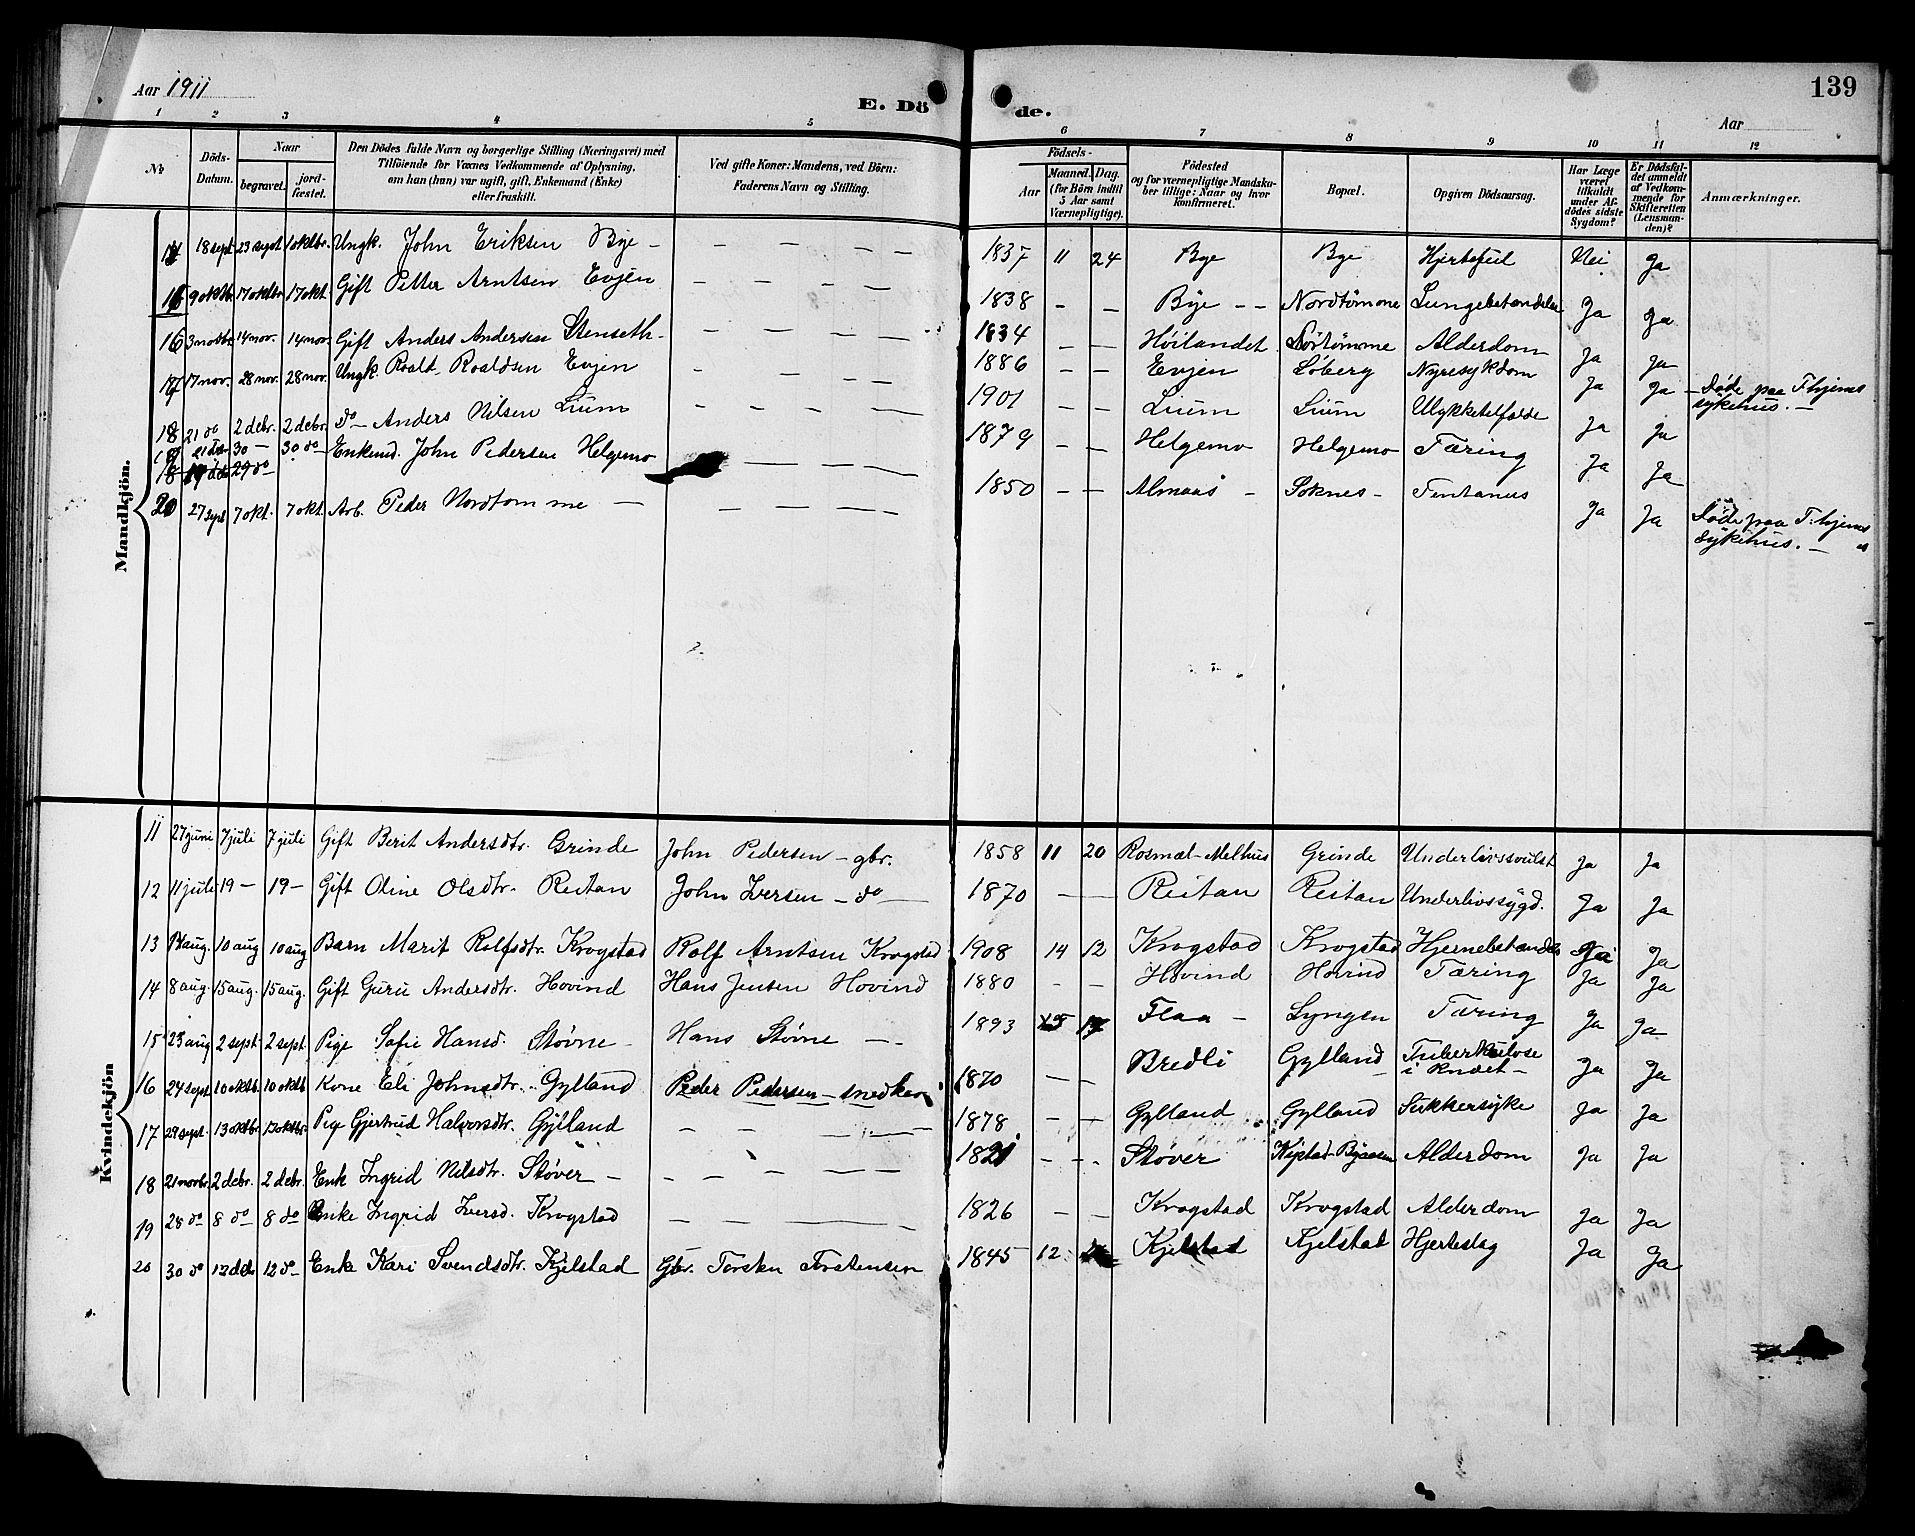 Aar 1911
E. Döde.
139
Aar
1 2 3 4 5 6 7 8 9 10 11 12
No
Döds-Datum.
Naar
begravet.
jord-fæstet.
Den Dödes fulde Navn og borgerlige Stilling (Næringsvei) med
Tilföiende for Voxnes Vedkommende af Oplysning,
om han (hun) var ugift, gift, Enkemand (Enke)
eller fraskilt.
Ved gifte Koner: Mandens, ved Börn:
Faderens Navn og Stilling.
Födsels-
Aar
Maaned. Dag.
(for Börn indtil
5 Aar samt
Værnepligtige).
Födested
og for værnepligtige Mandska-
ber tillige: Naar og hvor
konfirmeret.
Bopæl.
Opgiven Dödsaarsag.
Har Læge
været
tilkaldt
under Af-
dödes sidste
Sygdom?
Er Dödsfal-
det anmeldt
af Vedkom-
mende for
Skifteretten
(Lensman-
den)?
Anmærkninger.
Mandkjön.
18 sept 23 sept 1 oktbr. Ungk. John Eriksen Bye - — — — — 1837 11 24 Bye Bye Hjertefeil Nei Ja
9 oktbr 17 oktbr 17 okt. Gift Petter Arntsen Evjen — — — — 1838 - — Bye - - Nordtømme Lungebetændelse Ja Ja
16 3 novbr. 14 nov. 14 nov. Gift Anders Andersen Stenseth - — — — 1834 — — Høilandet Sørtømme Alderdom Ja Ja
17 17 nov. 28 nov. 28 nov. Ungk. Roald Roaldsen Evjen - — — — 1886 - — Evjen Løberg Nyresykdom Ja Ja Døde paa T.hjems
sykehus. —
18 21 do 2 debr. 2 debr. do Anders Nilsen Lium - — — — 1901 - — Lium Lium Ulykketilfælde Ja Ja
19 21 de 30 — 30 do Enkemd. John Pedersen Helgemo — — — 1879 - — Helgemo Helgemo Tæring Ja Ja
18 19 de 29 do
20 27 sept 7 okt. 7 okt. Arb. Peder Nordtømme — — — — — 1850 - — Almaas - Soknes - Tentanus Ja Ja Døde paa T.hjems
sykehus. —
Kvindekjön
11 27 juni 7 juli 7 juli Gift Berit Andersdtr. Grinde John Pedersen - gbr. 1858 11 20 Rosmæl - Melhus Grinde Underlivssvulst Ja Ja
12 11 juli 19 — 19 — Gift Oline Olsdtr. Reitan John Iversen - do — 1870 — — Reitan Reitan Underlivssygd. Ja Ja
13 aug. 10 aug 10 aug Barn Marit Rolfsdtr. Krogstad Rolf Arntsen Krogstad 1908 14 12 Krogstad Krogstad Hjernebetændelse Ja Ja
14 8 aug. 15 aug. 15 aug. Gift Guru Andersdtr. Hovind Hans Jensen Hovind 1880 - — Hovind Hovind Tæring Ja Ja
15 23 aug 2 sept. 2 sept. Pige Sofie Hansd. Støvne - Hans Støvne — - 1893 Flaa - Lyngen Tæring Ja Ja
16 24 sept 10 oktbr. 10 oktbr Kone Eli Johnsdtr. Gylland Peder Pedersen - snedker 1870 — — Bredli Gylland Tuberkulose
i knæet - Ja Ja
17 29 sept. 13 oktbr 13 oktbr. Pige Gjertrud Halvorsdtr. Gylland — — — — 1878 - — Gylland Gylland Sukkersyke Ja Ja
18 21 novbr. 2 debr. 2 debr. Enk Ingrid Nilsdtr. Støver — — — — — 1821 - — Støver Alderdom Ja Ja
19 28 do 8 do 8 do Enke Ingrid Iversd. Krogstad — — — — 1826 - — Krogstad Krogstad Alderdom Ja Ja
20 30 do 12 debr 12 do Enke Kari Svendsdtr. Kjelstad Gbr. Torsten Torstensen 1845 12 Kjelstad Kjelstad Hjerteslag Ja Ja